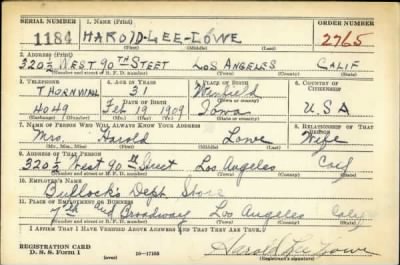 SERIAL NUMBER 1. NAME (Print) ORDER NUMBER
1184 HAROLD-LEE-LOWE 2765
(First) (Middle) (Last)
2. ADDRESS (Print)
320½ WEST 90TH STEET LOS ANGELES CALIF
(Number and street or R. F. D. number) (Town) (County) (State)
3. TELEPHONE 4. AGE IN YEARS 5. PLACE OF BIRTH 6. COUNTRY OF CITIZENSHIP
THORNWALL 31 Winfield
DATE OF BIRTH (Town or county)
4049 Feb 19 1909 Iowa U.S.A
(Exchange) (Number) (Mo.) (Day) (Yr.) (State or country)
7. NAME OF PERSON WHO WILL ALWAYS KNOW YOUR ADDRESS 8. RELATIONSHIP OF THAT PERSON
Mrs. Harold Lowe Wife
(Mr., Mrs., Miss) (First) (Middle) (Last)
9. ADDRESS OF THAT PERSON
320½ West 90th Street Los Angeles Calif
(Number and street or R. F. D. number) (Town) (County) (State)
10. EMPLOYER'S NAME
Bullock's Dept Store
11. PLACE OF EMPLOYMENT OR BUSINESS
7th and Broadway Los Angeles Calif
(Number and street or R. F. D. number) (Town) (County) (State)
I AFFIRM THAT I HAVE VERIFIED ABOVE ANSWERS AND THAT THEY ARE TRUE.
REGISTRATION CARD
D. S. S. Form 1 (over) 16—17105 Harold Lee Lowe
(Registrant's signature)